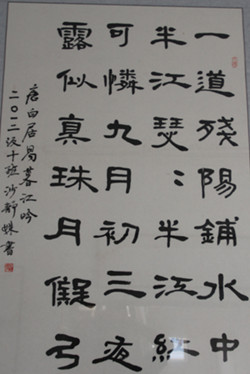 一道殘陽鋪水中
半江瑟:半江紅
可憐九月初三夜
露似真珠月儗弓
唐白居易暮江吟
二〇一二级十班沙書